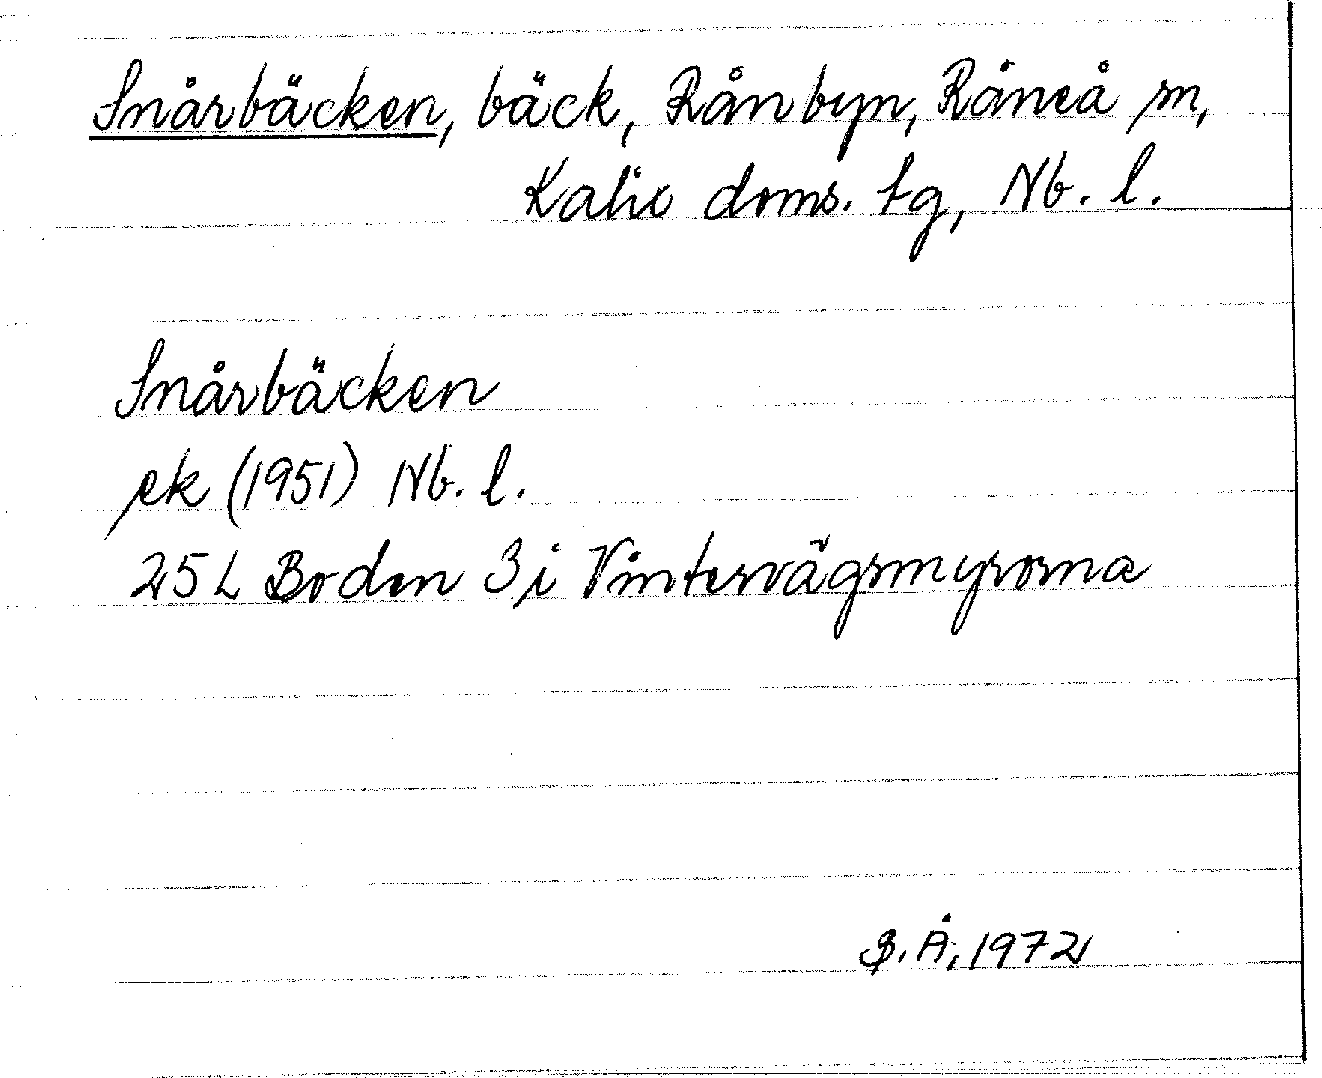 Snårbäcken, bäck, Rånbyn, Råneå sn,
Kalix doms. tg, Nb. l.
Snårbäcken
ek (1951) Nb. l.
25 L Boden 3 i Vintervägsmyrorna
Å, 1972